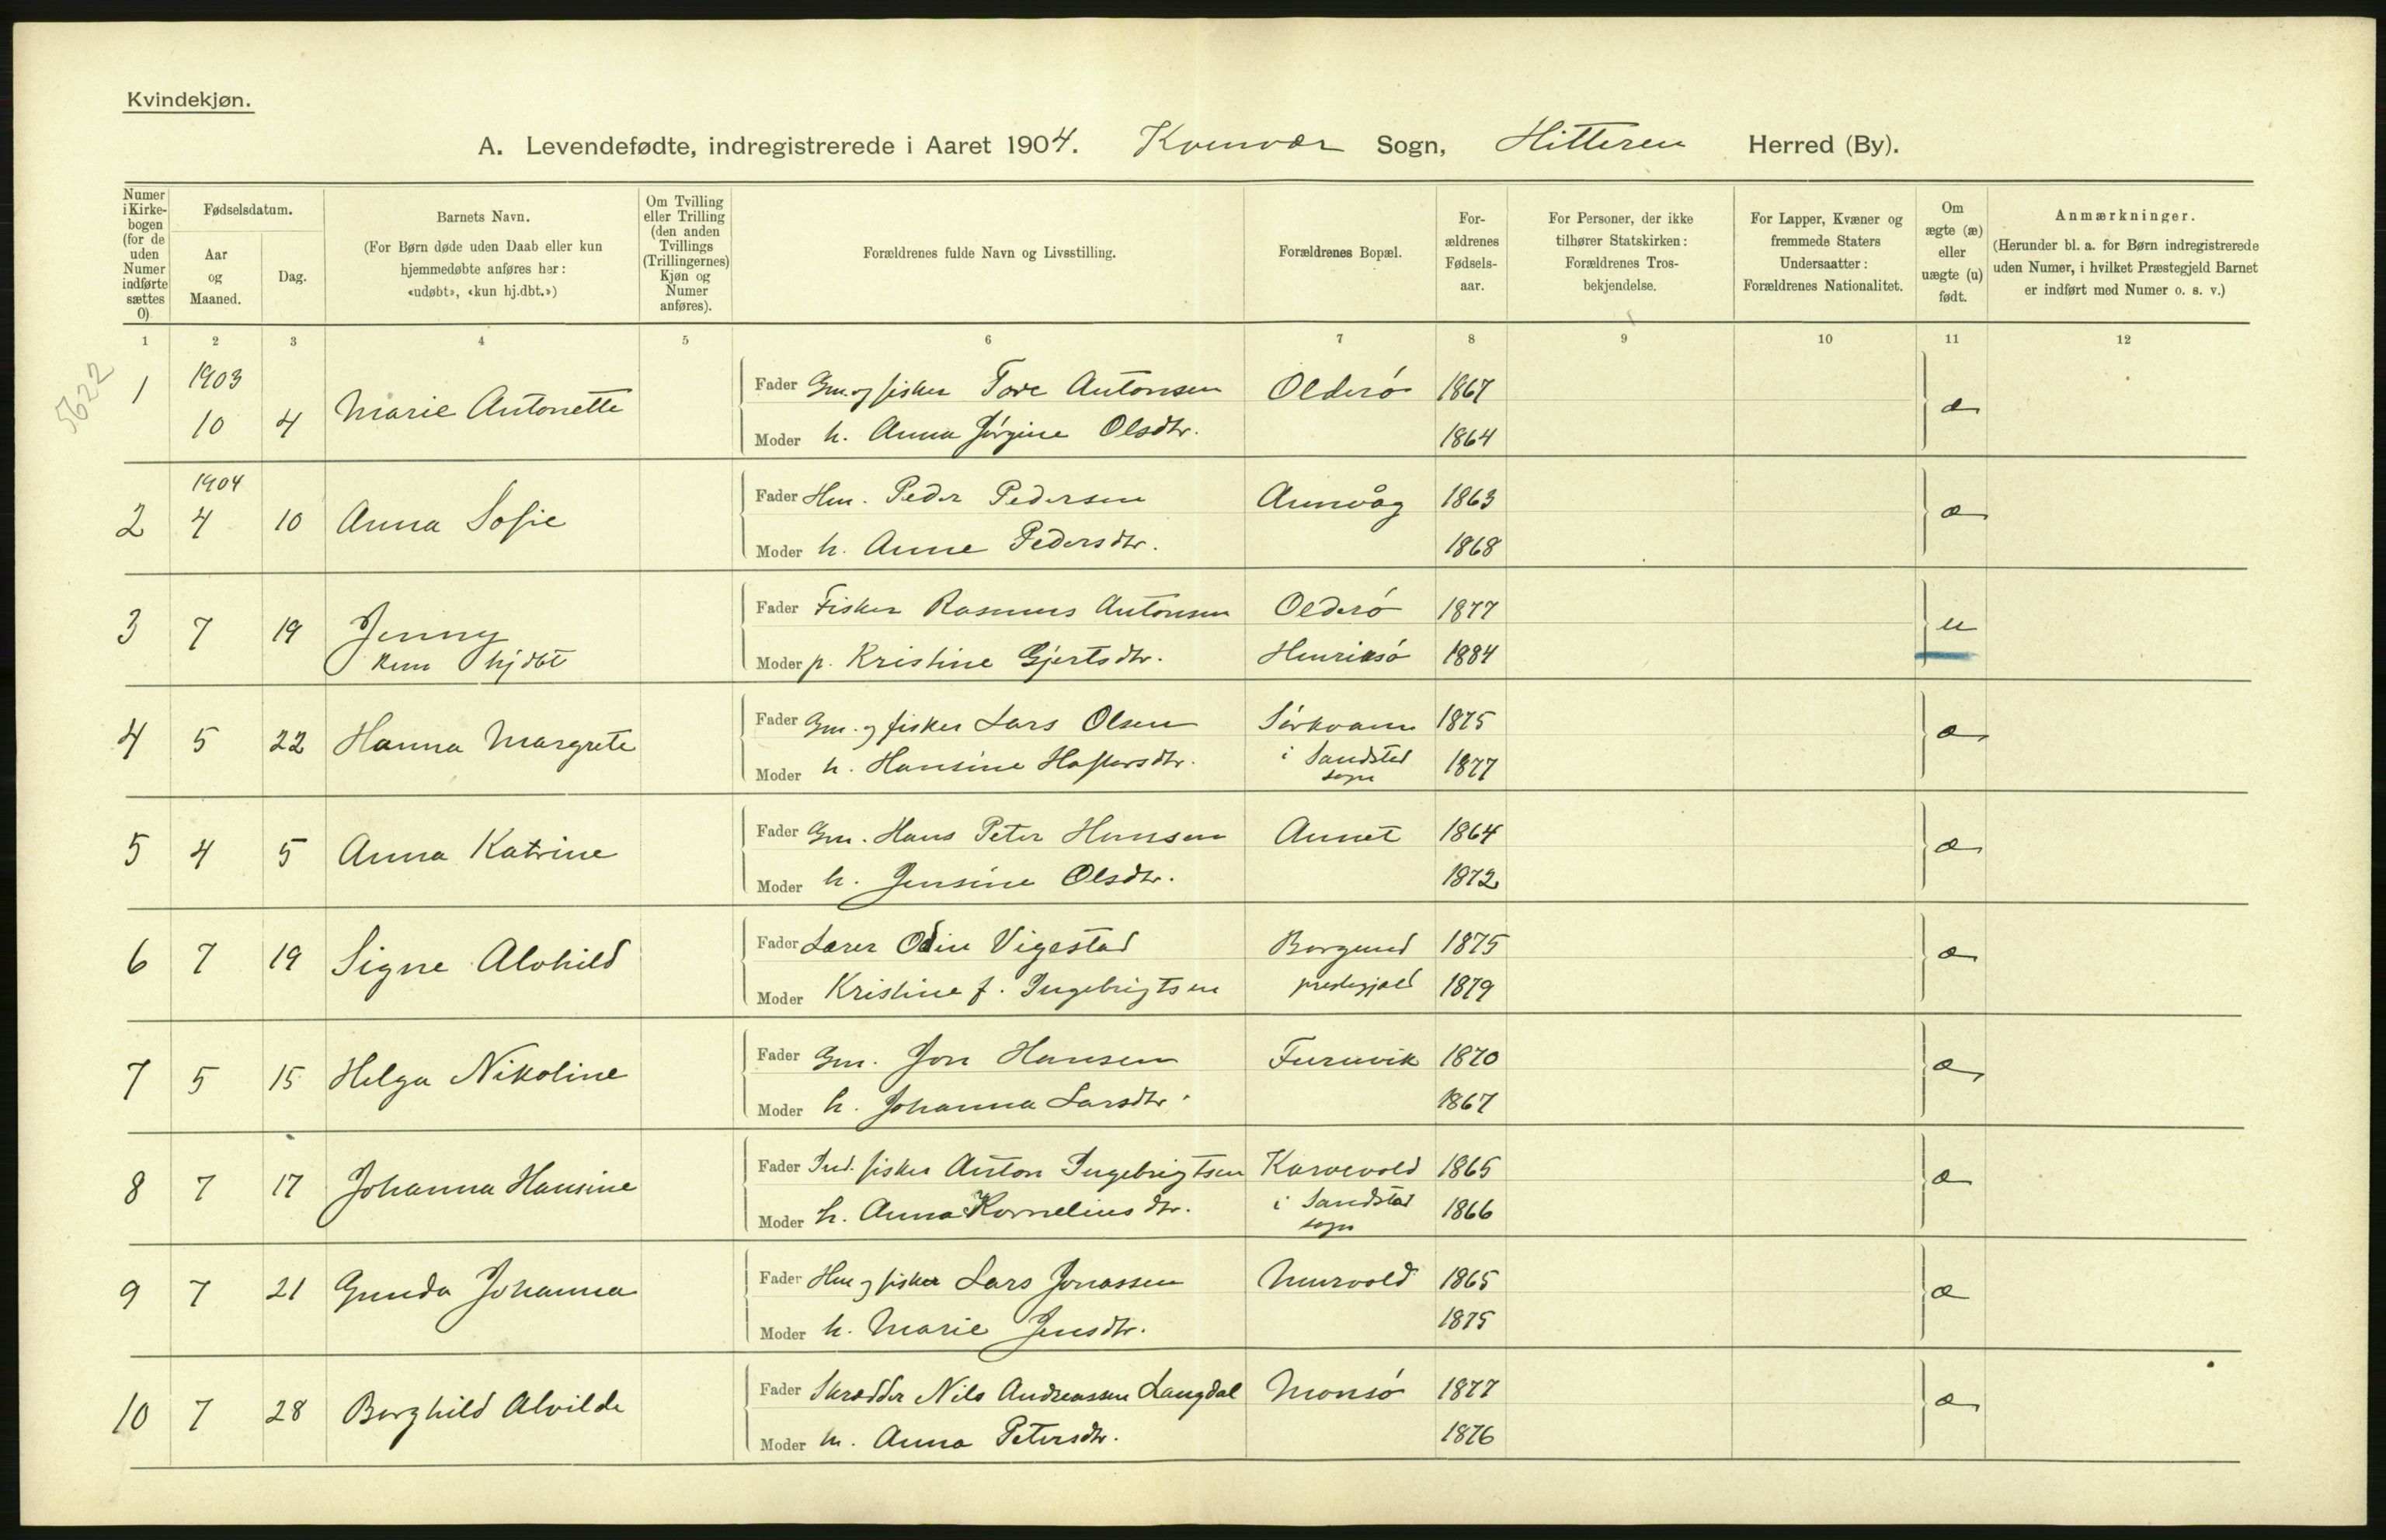 Kvindekjøn.
A. Levendefødte, indregistrerede i Aaret 1904. Kvenvær Sogn, Hitteren Herred (By).
Numer i Kirkebogen (for de uden Numer indførte sættes 0)
Fødselsdatum.
Aar og Maaned.
Dag.
Barnets Navn.
(For Børn døde uden Daab eller kun hjemmedøbte anføres her: «udøbt», «kun hj.dbt.»)
Om Tvilling eller Trilling (den anden Tvillings (Trillingernes) Kjøn og Numer anføres).
Forældrenes fulde Navn og Livsstilling.
Forældrenes Bopæl.
Forældrenes Fødselsaar.
For Personer, der ikke tilhører Statskirken: Forældrenes Trosbekjendelse.
For Lapper, Kvæner og fremmede Staters Undersaatter: Forældrenes Nationalitet.
Om ægte (æ) eller uægte (u) født.
Anmærkninger.
(Herunder bl. a. for Børn indregistrerede uden Numer, i hvilket Præstegjeld Barnet er indført med Numer o. s. v.)
1 2 3 4 5 6 7 8 9 10 11 12
5622
1 1903 10 4 Marie Antonette Fader Gm. og fisker Tore Antonsen Olderø 1867 æ
Moder h. Anna Jørgine Olsdtr. 1864
2 1904 4 10 Anna Sofie Fader Hm. Peder Pedersen Aunvåg 1863 æ
Moder h. Anne Pedersdtr. 1868
3 7 19 Jenny Fader Fisker Rasmus Antonsen Olderø 1877 u
kun hjdbt Moder p. Kristine Gjertsdtr. Henriksø 1884
4 5 22 Hanna Margrete Fader Gm. og fisker Lars Olsen Sørkvam 1875 æ
Moder h. Hansine Haftorsdtr. i Sandstad sogn 1877
5 4 5 Anna Katrine Fader Gm. Hans Peter Hansen Aunet 1864 æ
Moder h. Jensine Olsdtr. 1872
6 7 19 Signe Alvhild Fader Lærer Odin Vigestad Borgund 1875 æ
Moder Kristine f. Ingebrigtsen prestegjæld 1879
7 5 15 Helga Nikoline Fader Gm. Jon Hansen Furuvik 1870 æ
Moder h. Johanna Larsdtr. 1867
8 7 17 Johanna Hansine Fader Ind. fisker Anton Ingebrigtsen Karvevold 1865 æ
Moder h. Anna Kornelius dtr. i Sandstad sogn 1866
9 7 21 Gunda Johanna Fader Hm og fisker Lars Jonassen Murvold 1865 æ
Moder h. Marie Jensdtr. 1875
10 7 28 Borghild Alvilde Fader Skrædder Nils Andreassen Langdal Monsø 1877 æ
Moder h. Anna Petersdtr. 1876